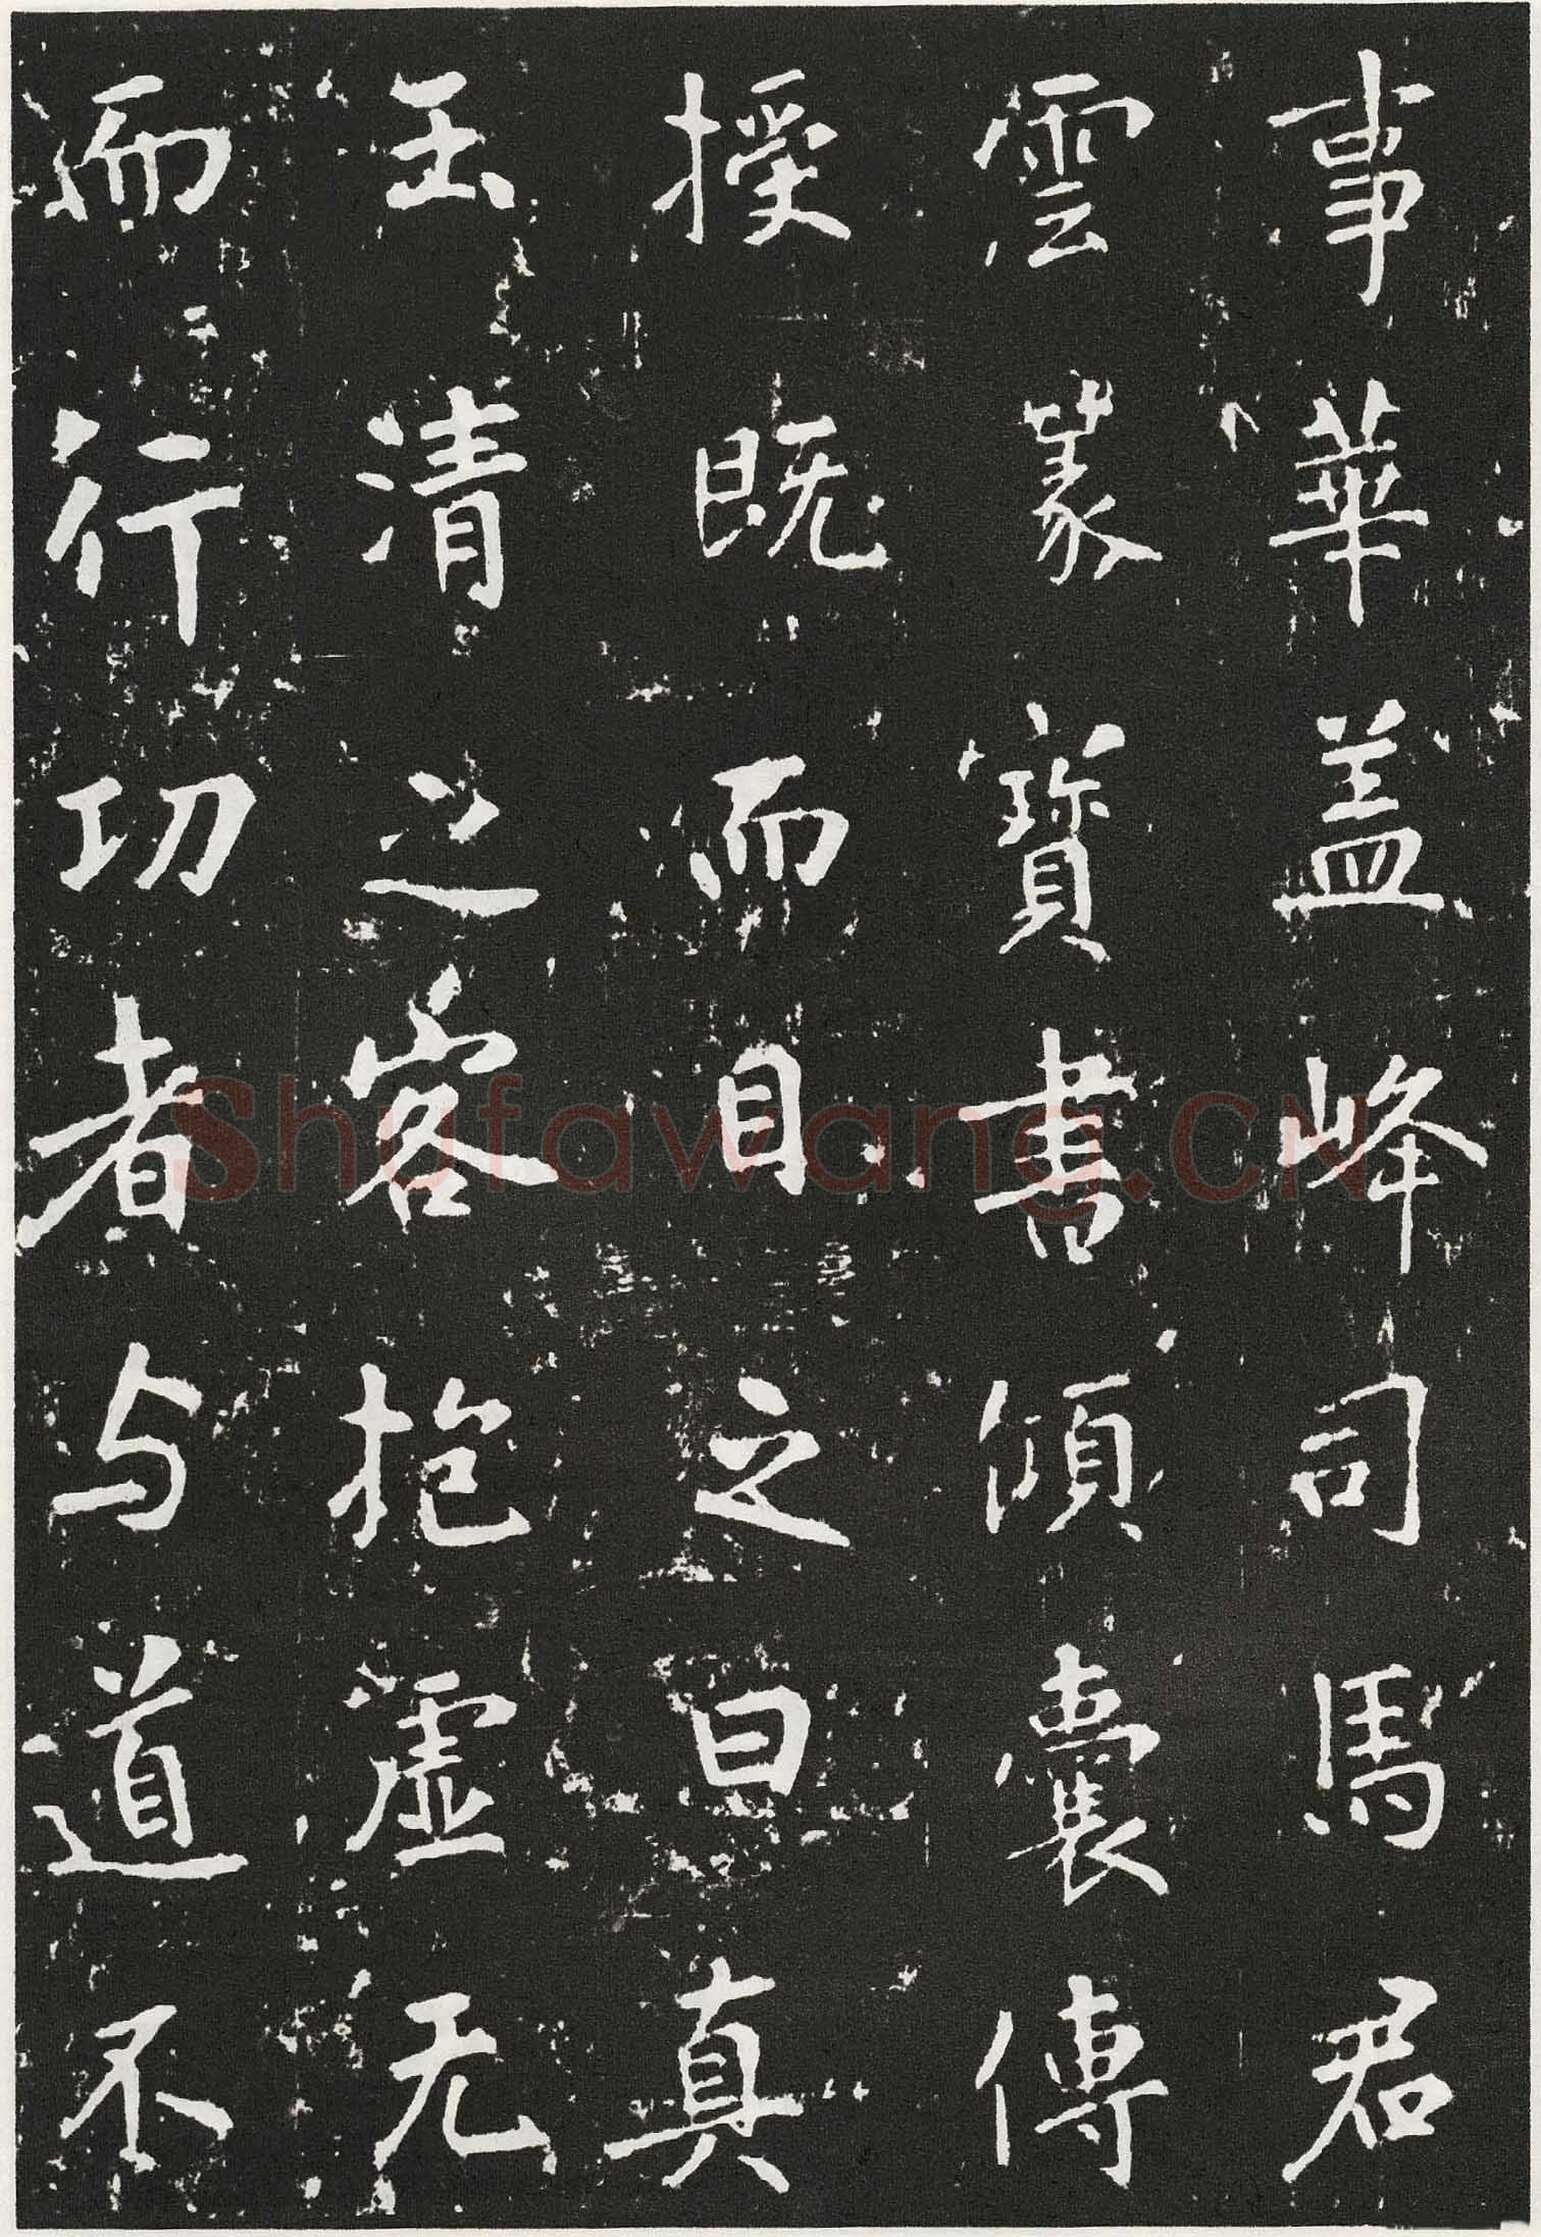 事華盖峰司馬君
雲篆寳書傾囊傳
授既而目之曰真
玉清之客抱虛无
而行功者与道不
Shufawang.CN